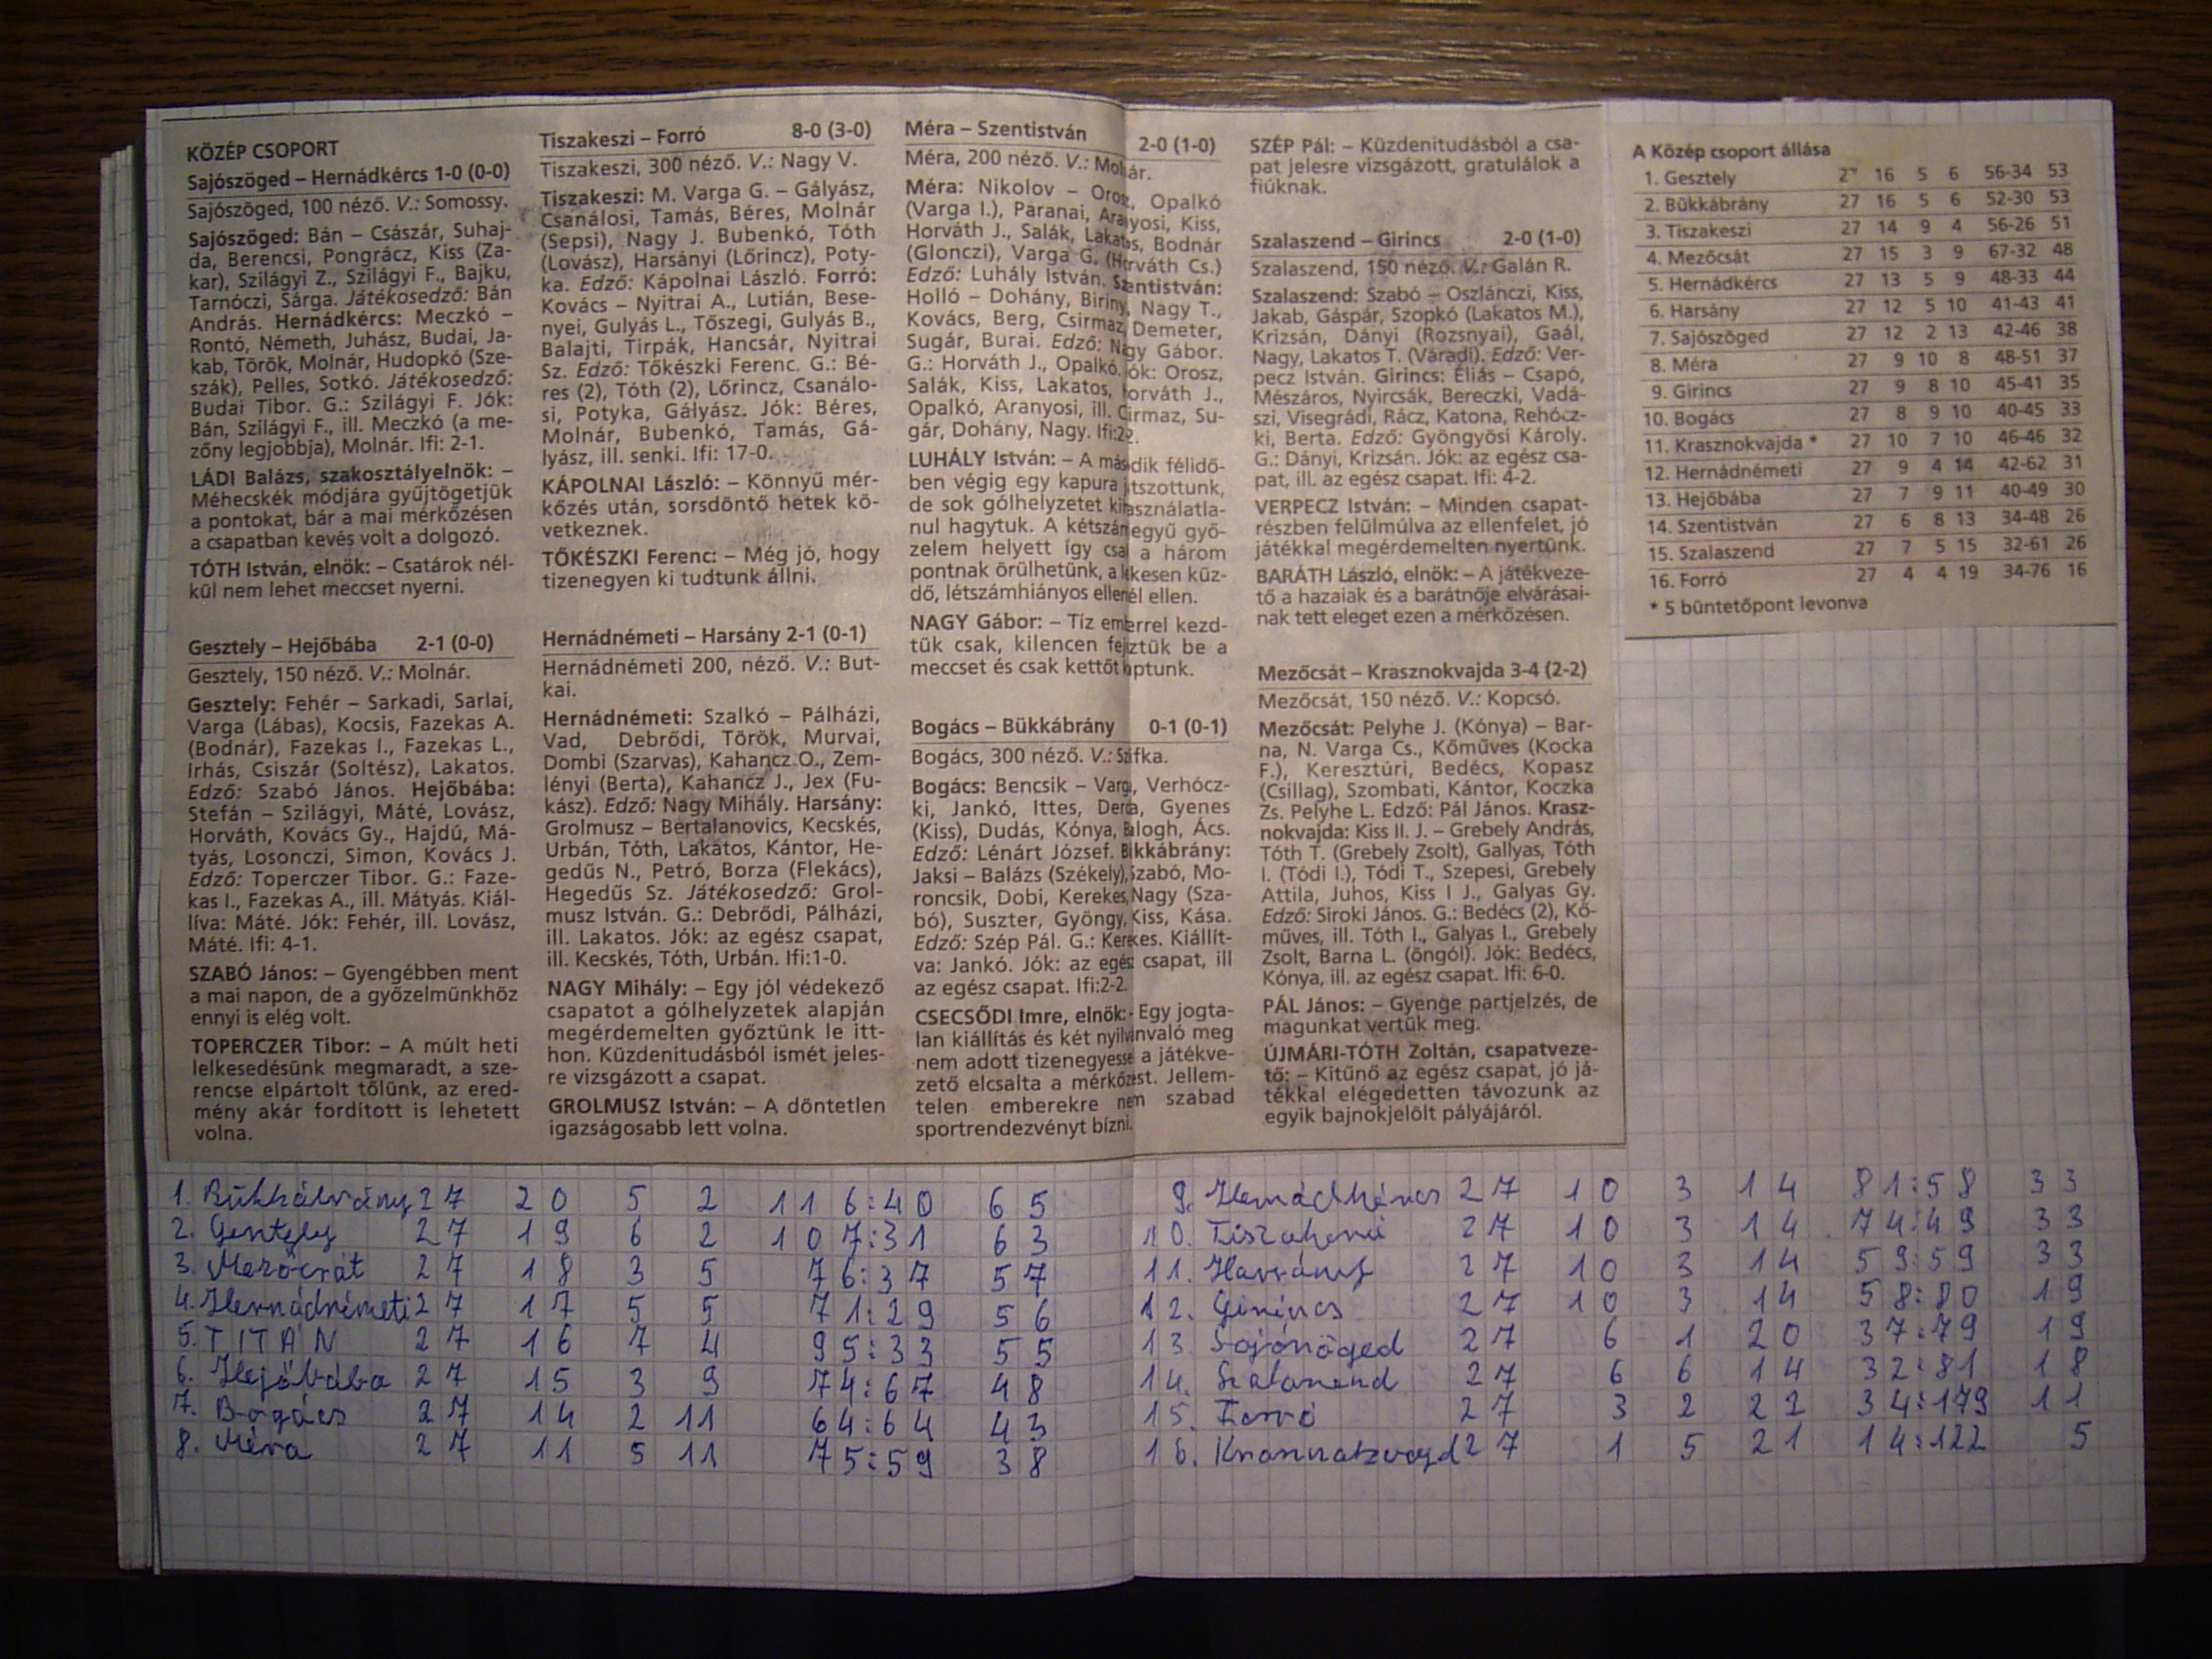 KÖZÉP CSOPORT
Sajószöged – Hernádkércs 1-0 (0-0)
Sajószöged, 100 néző. V.: Somossy.
Sajószöged: Bán – Császár, Suhaj-
da, Berencsi, Pongrácz, Kiss (Za-
kar), Szilágyi Z., Szilágyi F., Bajku,
Tarnóczi, Sárga. Játékosedző: Bán
András. Hernádkércs: Meczkó –
Rontó, Németh, Juhász, Budai, Ja-
kab, Török, Molnár, Hudopkó (Sze-
szák), Pelles, Sotkó. Játékosedző:
Budai Tibor. G.: Szilágyi F. Jók:
Bán, Szilágyi F., ill. Meczkó (a me-
zőny legjobbja), Molnár. Ifi: 2-1.
LÁDI Balázs, szakosztályelnök: –
Méhecskék módjára gyűjtögetjük
a pontokat, bár a mai mérkőzésen
a csapatban kevés volt a dolgozó.
TÓTH István, elnök: – Csatárok nél-
kül nem lehet meccset nyerni.
Gesztely – Hejőbába 2-1 (0-0)
Gesztely, 150 néző. V.: Molnár.
Gesztely: Fehér – Sarkadi, Sarlai,
Varga (Lábas), Kocsis, Fazekas A.
(Bodnár), Fazekas I., Fazekas L.,
Irhás, Csiszár (Soltész), Lakatos.
Edző: Szabó János. Hejőbába:
Stefán – Szilágyi, Máté, Lovász,
Horváth, Kovács Gy., Hajdú, Má-
tyás, Losonczi, Simon, Kovács J.
Edző: Toperczer Tibor. G.: Faze-
kas I., Fazekas A., ill. Mátyás. Kiál-
líva: Máté. Jók: Fehér, ill. Lovász,
Máté. Ifi: 4-1.
SZABÓ János: – Gyengébben ment
a mai napon, de a győzelmünkhöz
ennyi is elég volt.
TOPERCZER Tibor: – A múlt heti
lelkesedésünk megmaradt, a sze-
rencse elpártolt tőlünk, az ered-
mény akár fordított is lehetett
volna.
Tiszakeszi – Forró 8-0 (3-0)
Tiszakeszi, 300 néző. V.: Nagy V.
Tiszakeszi: M. Varga G. – Gályász,
Csanálosi, Tamás, Béres, Molnár
(Sepsi), Nagy J. Bubenkó, Tóth
(Lovász), Harsányi (Lőrincz), Poty-
ka. Edző: Kápolnai László. Forró:
Kovács – Nyitrai A., Lutián, Bese-
nyei, Gulyás L., Tőszegi, Gulyás B.,
Balajti, Tirpák, Hancsár, Nyitrai
Sz. Edző: Tőkészki Ferenc. G.: Bé-
res (2), Tóth (2), Lőrincz, Csanálo-
si, Potyka, Gályász. Jók: Béres,
Molnár, Bubenkó, Tamás, Gá-
lyász, ill. senki. Ifi: 17-0.
KÁPOLNAI László: – Könnyű mér-
kőzés után, sorsdöntő hetek kö-
vetkeznek.
TŐKÉSZKI Ferenc: – Még jó, hogy
tizenegyen ki tudtunk állni.
Hernádnémeti – Harsány 2-1 (0-1)
Hernádnémeti 200, néző. V.: But-
kai.
Hernádnémeti: Szalkó – Pálházi,
Vad, Debrődi, Török, Murvai,
Dombi (Szarvas), Kahancz O., Zem-
lényi (Berta), Kahancz J., Jex (Fu-
kász). Edző: Nagy Mihály. Harsány:
Grolmusz – Bertalanovics, Kecskés,
Urbán, Tóth, Lakatos, Kántor, He-
gedűs N., Petró, Borza (Flekács),
Hegedűs Sz. Játékosedző: Grol-
musz István. G.: Debrődi, Pálházi,
ill. Lakatos. Jók: az egész csapat,
ill. Kecskés, Tóth, Urbán. Ifi:1-0.
NAGY Mihály: – Egy jól védekező
csapatot a gólhelyzetek alapján
megérdemelten győztünk le itt-
hon. Küzdenitudásból ismét jeles-
re vizsgázott a csapat.
GROLMUSZ István: – A döntetlen
igazságosabb lett volna.
Méra – Szentistván 2-0 (1-0)
Méra, 200 néző. V.: Molnár.
Méra: Nikolov – Orosz, Opalkó
(Varga I.), Paranai, Aranyosi, Kiss,
Horváth J., Salák, Lakatos, Bodnár
(Glonczi), Varga G. (Horváth Cs.)
Edző: Luhály István. Szentistván:
Holló – Dohány, Biriny, Nagy T.,
Kovács, Berg, Csirmaz, Demeter,
Sugár, Burai. Edző: Nagy Gábor.
G.: Horváth J., Opalkó. Jók: Orosz,
Salák, Kiss, Lakatos, Horváth J.,
Opalkó, Aranyosi, ill. Csirmaz, Su-
gár, Dohány, Nagy. Ifi:2-2.
LUHÁLY István: – A második félidő-
ben végig egy kapura játszottunk,
de sok gólhelyzetet kihasználatla-
nul hagytuk. A kétszámjegyű győ-
zelem helyett így csak a három
pontnak örülhetünk, a lelkesen küz-
dő, létszámhiányos ellenfél ellen.
NAGY Gábor: – Tíz emberrel kezd-
tük csak, kilencen fejeztük be a
meccset és csak kettőt kaptunk.
Bogács – Bükkábrány 0-1 (0-1)
Bogács, 300 néző. V.: Szifka.
Bogács: Bencsik – Varga, Verhócz-
ki, Jankó, Ittes, Derda, Gyenes
(Kiss), Dudás, Kónya, Balogh, Ács.
Edző: Lénárt József. Bükkábrány:
Jaksi – Balázs (Székely), Szabó, Mo-
roncsik, Dobi, Kerekes, Nagy (Sza-
bó), Suszter, Gyöngy, Kiss, Kása.
Edző: Szép Pál. G.: Kerekes. Kiállít-
va: Jankó. Jók: az egész csapat, ill
az egész csapat. Ifi:2-2.
CSECSŐDI Imre, elnök: - Egy jogta-
lan kiállítás és két nyilvánvaló meg
nem adott tizenegyessel a játékve-
zető elcsalta a mérkőzést. Jellem-
telen emberekre nem szabad
sportrendezvényt bízni.
SZÉP Pál: – Küzdenitudásból a csa-
pat jelesre vizsgázott, gratulálok a
fiúknak.
Szalaszend – Girincs 2-0 (1-0)
Szalaszend, 150 néző. V.: Galán R.
Szalaszend: Szabó – Oszlánczi, Kiss,
Jakab, Gáspár, Szopkó (Lakatos M.),
Krizsán, Dányi (Rozsnyai), Gaál,
Nagy, Lakatos T. (Váradi). Edző: Ver-
pecz István. Girincs: Éliás – Csapó,
Mészáros, Nyircsák, Bereczki, Vadá-
szi, Visegrádi, Rácz, Katona, Rehócz-
ki, Berta. Edző: Gyöngyösi Károly.
G.: Dányi, Krizsán. Jók: az egész csa-
pat, ill. az egész csapat. Ifi: 4-2.
VERPECZ István: – Minden csapat-
részben felülmúlva az ellenfelet, jó
játékkal megérdemelten nyertünk.
BARÁTH László, elnök: – A játékveze-
tő a hazaiak és a barátnője elvárásai-
nak tett eleget ezen a mérkőzésen.
Mezőcsát – Krasznokvajda 3-4 (2-2)
Mezőcsát, 150 néző. V.: Kopcsó.
Mezőcsát: Pelyhe J. (Kónya) – Bar-
na, N. Varga Cs., Kőműves (Kocka
F.), Keresztúri, Bedécs, Kopasz
(Csillag), Szombati, Kántor, Koczka
Zs. Pelyhe L. Edző: Pál János. Krasz-
nokvajda: Kiss II. J. – Grebely András,
Tóth T. (Grebely Zsolt), Gallyas, Tóth
I. (Tódi I.), Tódi T., Szepesi, Grebely
Attila, Juhos, Kiss I J., Galyas Gy.
Edző: Siroki János. G.: Bedécs (2), Kő-
műves, ill. Tóth I., Galyas I., Grebely
Zsolt, Barna L. (öngól). Jók: Bedécs,
Kónya, ill. az egész csapat. Ifi: 6-0.
PÁL János: – Gyenge partjelzés, de
magunkat vertük meg.
ÚJMÁRI-TÓTH Zoltán, csapatveze-
tő: – Kitűnő az egész csapat, jó já-
tékkal elégedetten távozunk az
egyik bajnokjelölt pályájáról.
A Közép csoport állása
1. Gesztely 27 16 5 6 56-34 53
2. Bükkábrány 27 16 5 6 52-30 53
3. Tiszakeszi 27 14 9 4 56-26 51
4. Mezőcsát 27 15 3 9 67-32 48
5. Hernádkércs 27 13 5 9 48-33 44
6. Harsány 27 12 5 10 41-43 41
7. Sajószöged 27 12 2 13 42-46 38
8. Méra 27 9 10 8 48-51 37
9. Girincs 27 9 8 10 45-41 35
10. Bogács 27 8 9 10 40-45 33
11. Krasznokvajda * 27 10 7 10 46-46 32
12. Hernádnémeti 27 9 4 14 42-62 31
13. Hejőbába 27 7 9 11 40-49 30
14. Szentistván 27 6 8 13 34-48 26
15. Szalaszend 27 7 5 15 32-61 26
16. Forró 27 4 4 19 34-76 16
* 5 büntetőpont levonva
1. Bükkábrány 27 20 5 2 116:40 65
2. Gesztely 27 19 6 2 107:31 63
3. Mezőcsát 27 18 3 5 76:37 57
4. Hernádnémeti 27 17 5 5 71:29 56
5. TITÁN 27 16 7 4 95:33 55
6. Hejőbába 27 15 3 9 74:67 48
7. Bogács 27 14 2 11 64:64 43
8. Méra 27 11 5 11 75:59 38
9. Hernádkércs 27 10 3 14 81:58 33
10. Tiszakeszi 27 10 3 14 74:49 33
11. Harsány 27 10 3 14 59:59 33
12. Girincs 27 10 3 14 58:80 19
13. Sajószöged 27 6 1 20 37:79 19
14. Szalaszend 27 6 6 14 32:81 18
15. Forró 27 3 2 22 34:179 11
16. Krasznokvajd 27 1 5 21 14:122 5